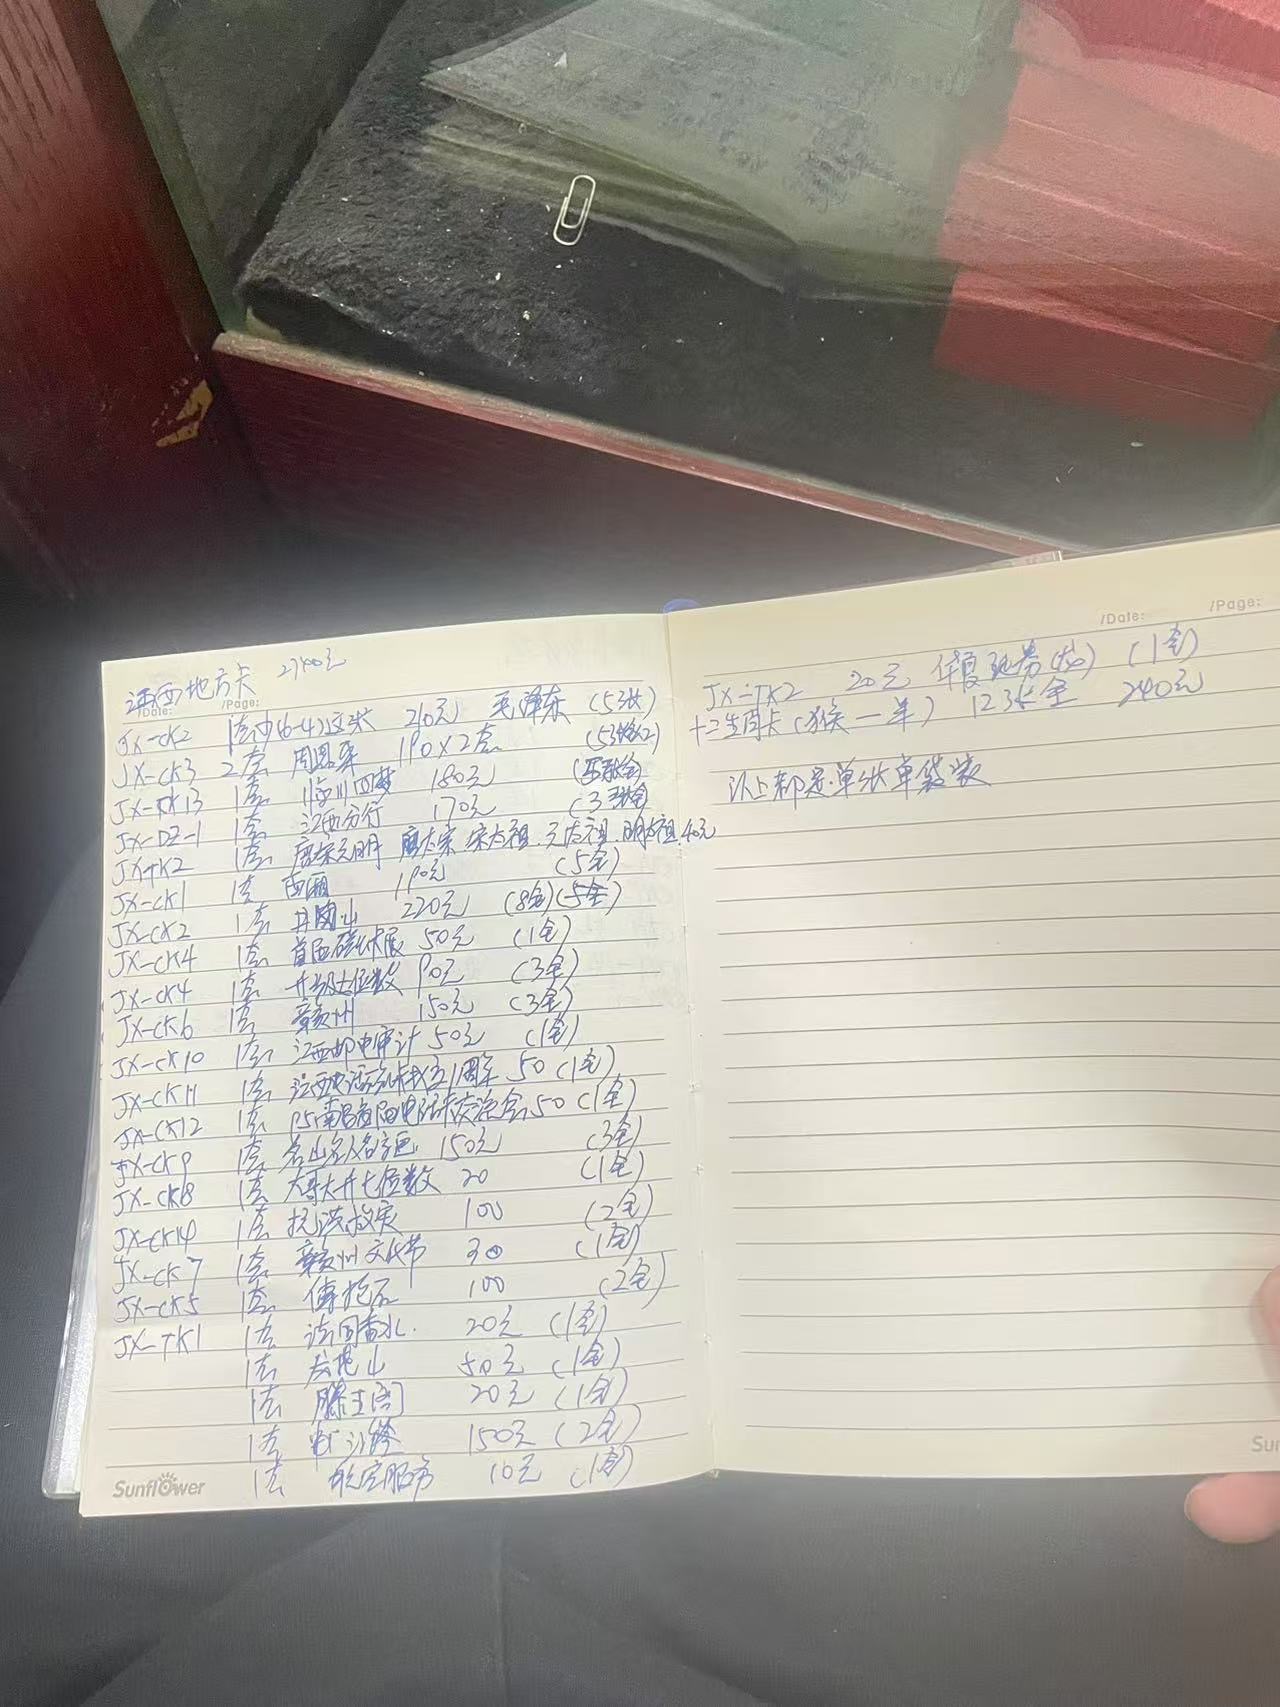 江西地方卡 2740元
/Date: /Page:
JX-CK2 1套中(6-4)这张 210元 毛泽东 (5张)
JX-CK3 2套 周恩来 190×2套
JX-CK13 1套 临川四梦 180元
JX-DZ-1 1套 江西分行 170元
JX-TK2 1套 唐宋元明 唐太宗.宋太祖.元太祖.明太祖.40元
JX-CK1 1套 190元 (5全)
JX-CK2 1套 井岗山 220元 (8全)(5全)
JX-CK4 1套 首届磁卡展 50元 (1全)
JX-CK4 1套 升七位数 90元 (3全)
JX-CK6 1套 赣州 150元 (3全)
JX-CK10 1套 江西邮电审计 50元 (1全)
JX-CK11 1套 江西电话磁卡成立1周年 50 (1全)
JX-CK12 1套 95南昌首届电话卡交流会 50 (1全)
JX-CK9 1套 名山名人名 150元 (3全)
JX-CK8 1套 大哥大升七位数 20 (1全)
JX-CK14 1套 抗洪救灾 100 (2全)
JX-CK7 1套 赣州文化节 30 (1全)
JX-CK5 1套 傅抱石 100 (2全)
JX-TK1 1套 法国香水. 20元 (1全)
1套 龙虎山 50元 (1全)
1套 滕王阁 20元 (1全)
1套 150元 (2全)
1套 航空服务 10元 (1全)
Sunflower
/Date: /Page:
JX-TK2 20元 华夏 (1全)
十二生肖卡(猴一羊) 12张全 240元
以上都是单张单袋装
Su